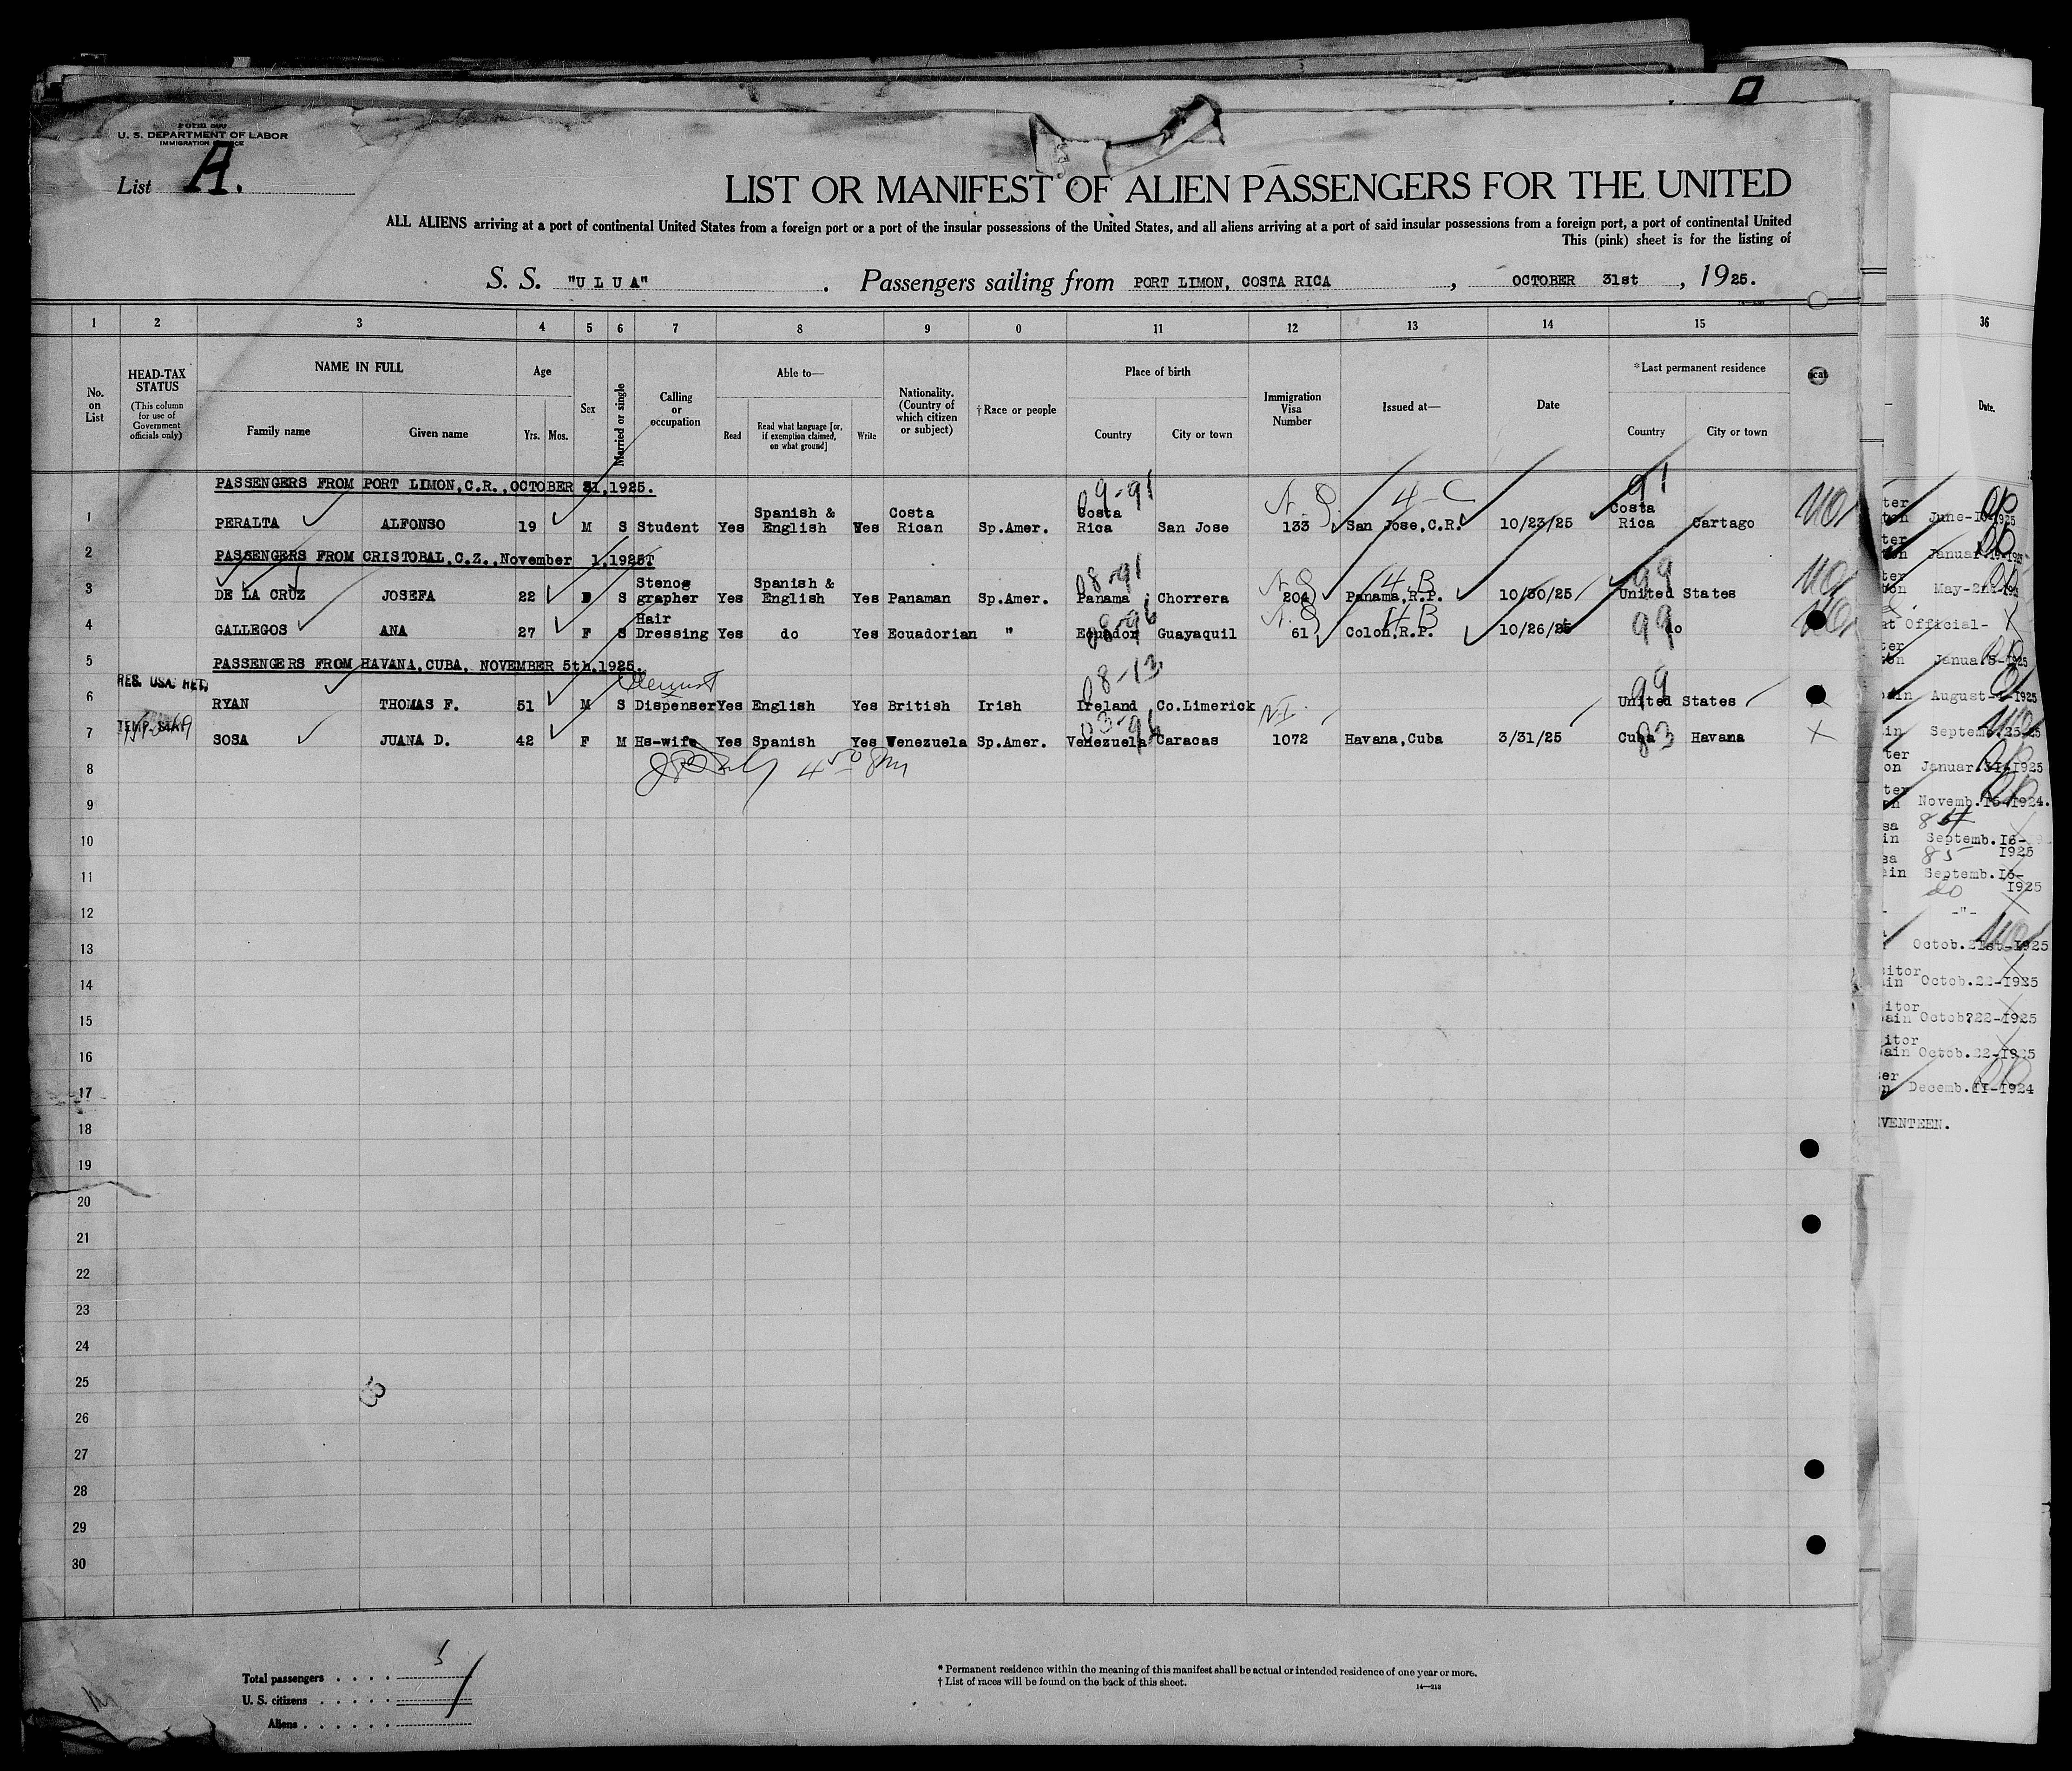 U. S. DEPARTMENT OF LABOR
IMMIGRATION
List A.
LIST OR MANIFEST OF ALIEN PASSENGERS FOR THE UNITED
ALL ALIENS arriving at a port of continental United States from a foreign port or a port of the insular possessions of the United States, and all aliens arriving at a port of said insular possessions from a foreign port, a port of continental United
This (pink) sheet is for the listing of
S. S. "U L U A" . Passengers sailing from PORT LIMON, COSTA RICA , OCTOBER 31st , 1925.
1 2 3 4 5 6 7 8 9 0 11 12 13 14 15
No. on List
HEAD-TAX STATUS
(This column for use of Government officials only)
NAME IN FULL
Family name Given name
Age
Yrs. Mos.
Sex
Married or single
Calling or occupation
Able to—
Read
Read what language [or, if exemption claimed, on what ground]
Write
Nationality. (Country of which citizen or subject)
† Race or people
Place of birth
Country City or town
Immigration Visa Number
Issued at—
Date
* Last permanent residence
Country City or town
PASSENGERS FROM PORT LIMON,C.R.,OCTOBER 31,1925.
09-91 4-C 91
1 PERALTA ALFONSO 19 M S Student Yes Spanish & English Yes Costa Rican Sp.Amer. Costa Rica San Jose 133 San Jose,C.R. 10/23/25 Costa Rica Cartago
2 PASSENGERS FROM CRISTOBAL,C.Z.,November 1,1925
08-91 4B 99
3 DE LA CRUZ JOSEFA 22 S Stenog grapher Yes Spanish & English Yes Panaman Sp.Amer. Panama Chorrera 204 Panama,R.P. 10/30/25 United States
4B 99
4 GALLEGOS ANA 27 F S Hair Dressing Yes do Yes Ecuadorian " Ecuador Guayaquil 61 Colon,R.P. 10/26/25 do
5 PASSENGERS FROM HAVANA,CUBA, NOVEMBER 5th,1925.
RES. USA. RET. 08-13 99
6 RYAN THOMAS F. 51 M S Dispenser Yes English Yes British Irish Ireland Co.Limerick United States
TEMP. STAY 03-94 83
7 SOSA JUANA D. 42 F M Hs-wife Yes Spanish Yes Venezuela Sp.Amer. Venezuela Caracas 1072 Havana,Cuba 3/31/25 Cuba Havana
8
9
10
11
12
13
14
15
16
17
18
19
20
21
22
23
24
25
26
27
28
29
30
Total passengers 5
U. S. citizens
Aliens
* Permanent residence within the meaning of this manifest shall be actual or intended residence of one year or more.
† List of races will be found on the back of this sheet.
14—213
36
Date.
May-2nd-
Official-
August-
Septemb.
Novemb.15-1924.
Septemb.16-
1925
85
Septemb.16-
1925
do
-"-
Octob.21st-1925
Octob.22-1925
Octob?22-1925
Octob.22-1925
Decemb.11-1924
VENTEEN.